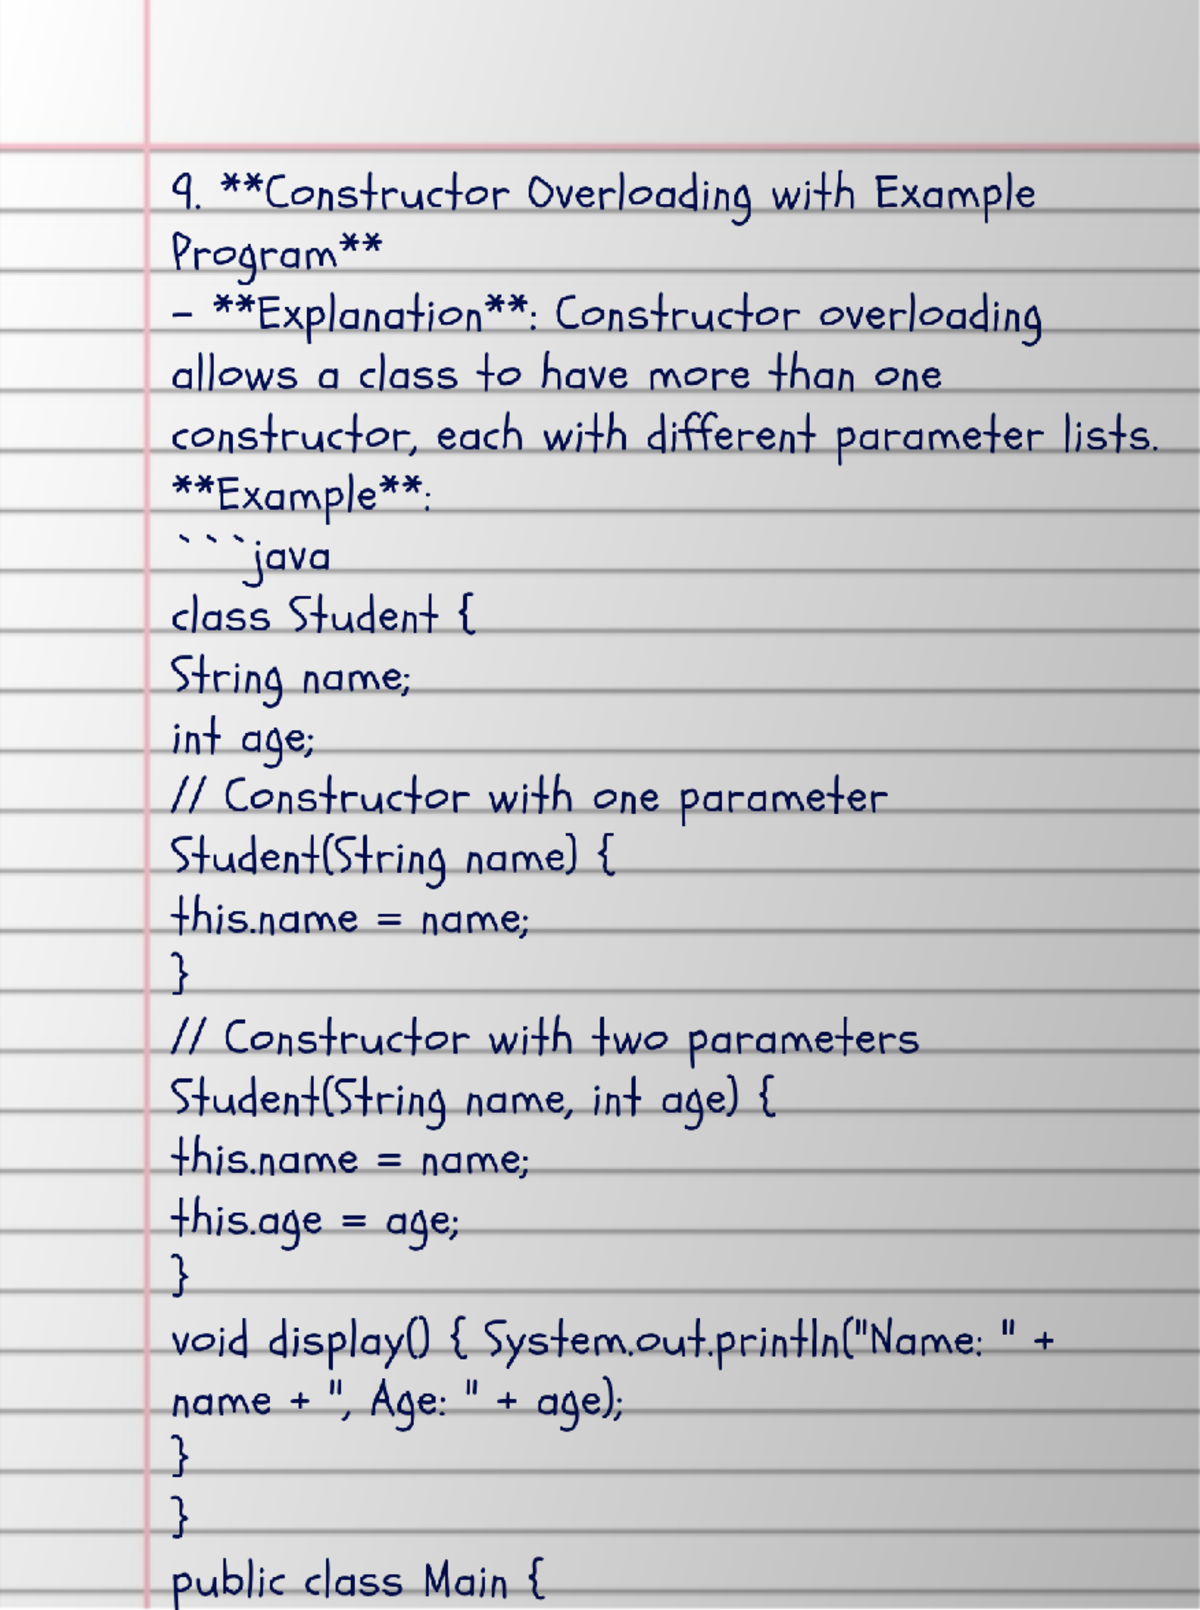 9. **Constructor Overloading with Example
Program**
- **Explanation**: Constructor overloading
allows a class to have more than one
constructor, each with different parameter lists.
**Example**:
```java
class Student {
String name;
int age;
// Constructor with one parameter
Student(String name) {
this.name = name;
}
// Constructor with two parameters
Student(String name, int age) {
this.name = name;
this.age = age;
}
void display() { System.out.println("Name: " +
name + ", Age: " + age);
}
}
public class Main {